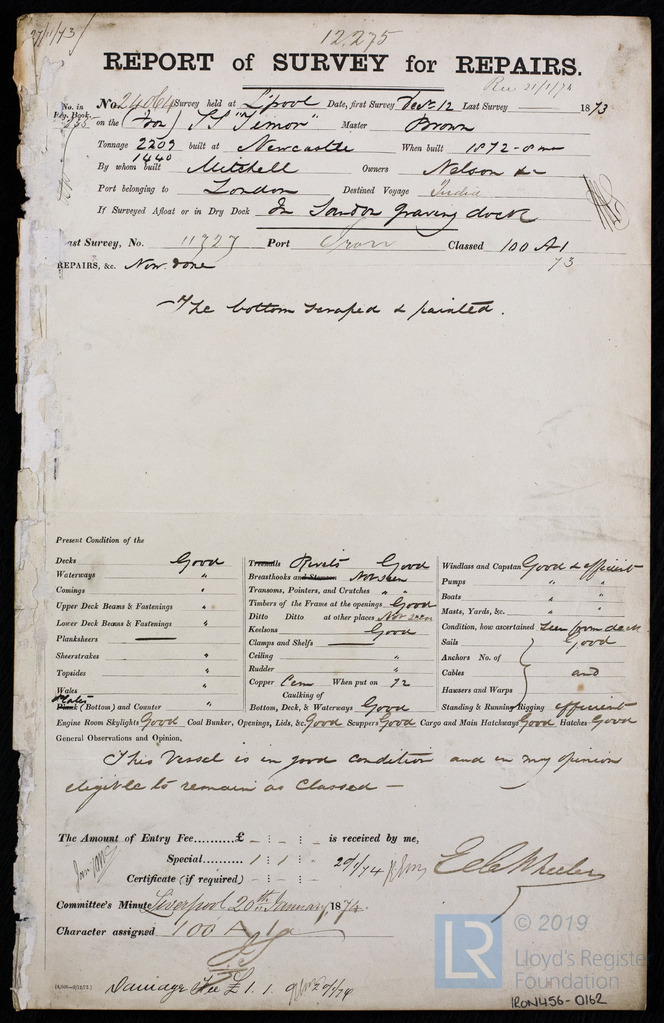 27/11/73
12,275
REPORT of SURVEY for REPAIRS.
Rec 21/1/74
No. in Reg. Book. 235
No. 24064 Survey held at L'pool Date, first Survey Decr 12 Last Survey 1873
on the (Iron) SS "Timor" Master Brown
Tonnage 2209 built at Newcastle When built 1872-8 mo
1440
By whom built Mitchell Owners Nelson &c
Port belonging to London Destined Voyage India
If Surveyed Afloat or in Dry Dock In Sandon graving dock
Last Survey, No. 11727 Port Iron Classed 100 A1
73
REPAIRS, &c. Now done
The bottom scraped & painted.
Present Condition of the
Decks Good
Waterways "
Comings "
Upper Deck Beams & Fastenings "
Lower Deck Beams & Fastenings "
Planksheers
Sheerstrakes "
Topsides "
Wales "
Plates
Plank (Bottom) and Counter "
Treenails Rivets Good
Breasthooks and Stemson Not seen
Transoms, Pointers, and Crutches " "
Timbers of the Frame at the openings Good
Ditto Ditto at other places Not seen
Keelsons Good
Clamps and Shelfs
Ceiling "
Rudder "
Copper Cem When put on 72
Caulking of
Bottom, Deck, & Waterways Good
Windlass and Capstan Good & efficient
Pumps " "
Boats " "
Masts, Yards, &c. " "
Condition, how ascertained Seen from deck
Sails Good
Anchors No. of
Cables and
Hawsers and Warps
Standing & Running Rigging efficient
Engine Room Skylights Good Coal Bunker, Openings, Lids, &c. Good Scuppers Good Cargo and Main Hatchways Good Hatches Good
General Observations and Opinion,
This Vessel is in good condition and in my opinion
eligible to remain as Classed —
The Amount of Entry Fee..........£ - : - : - is received by me,
Special.......... 1 : 1 : - 20/1/74
Certificate (if required) - : - : -
Committee's Minute Liverpool 20th January, 1874.
Character assigned 100 A 1
Damage Fee £ 1. 1. 20/1/74
© 2019
LR
Lloyd's Register
Foundation
IRON456-0162